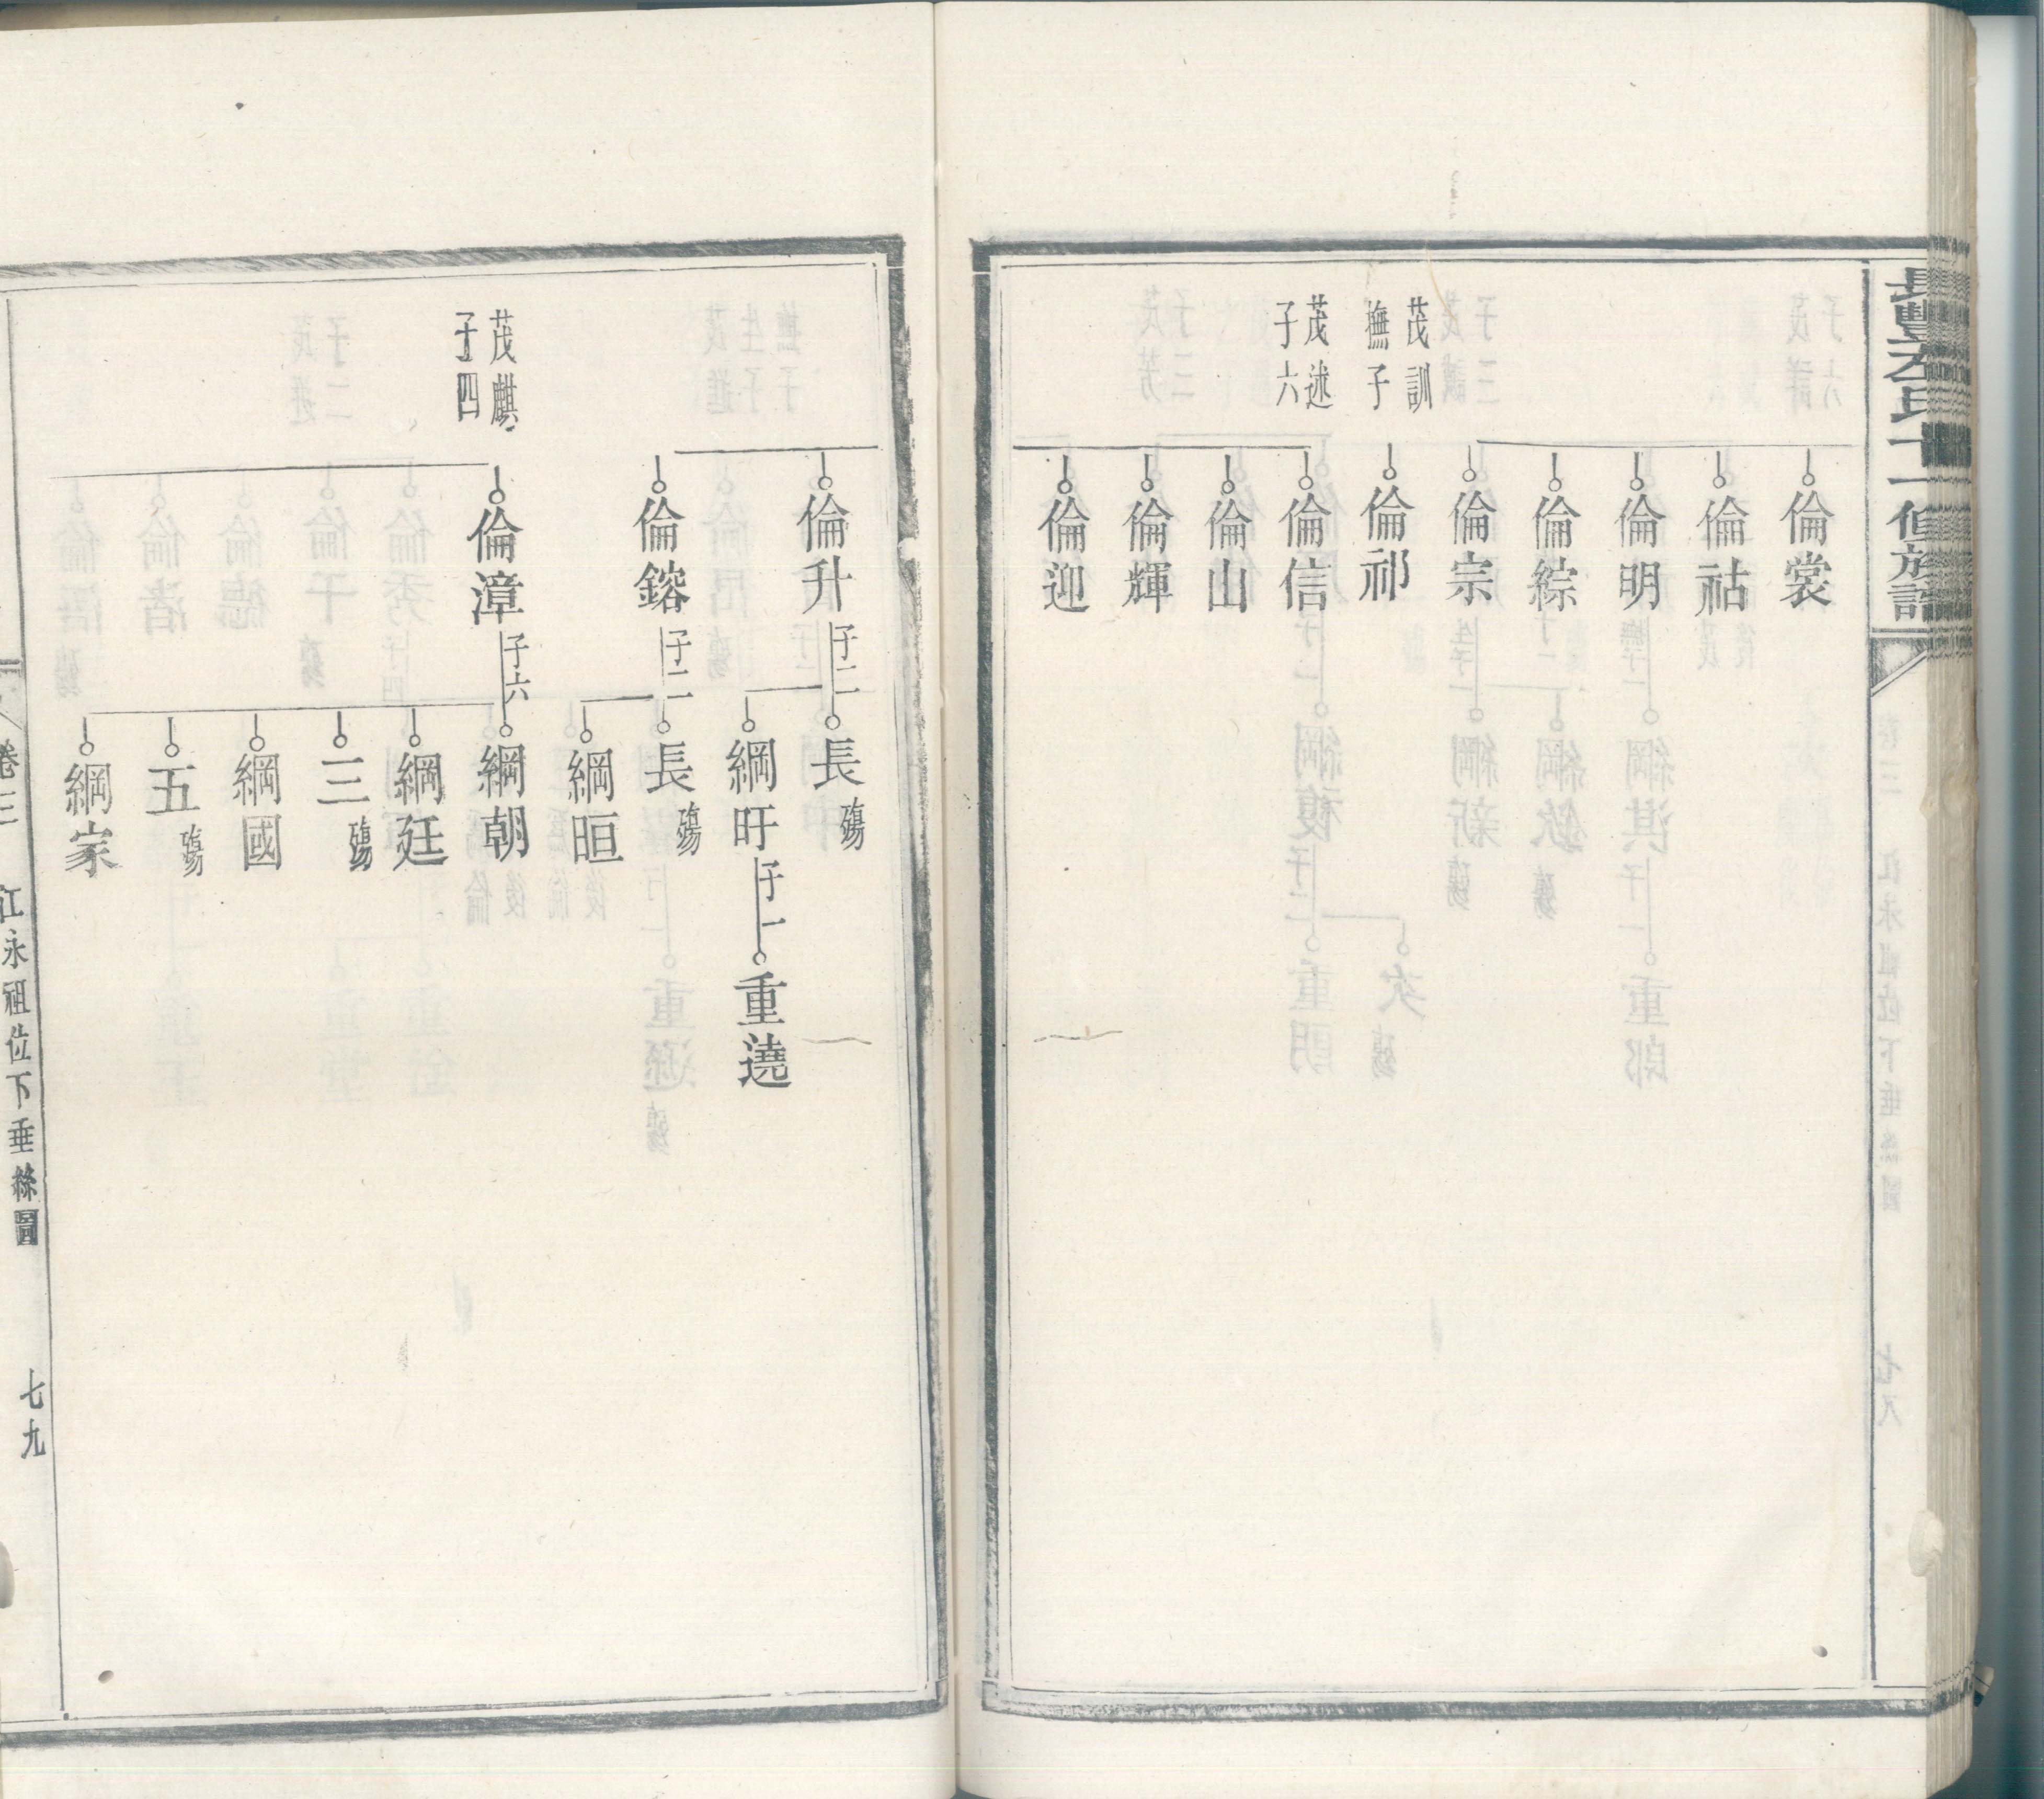 長豐左氏十一修族譜
倫裳
倫祜
倫明
倫綜
倫宗
茂訓
撫子
倫祁
茂述
子六
倫信
倫山
倫輝
倫迎
倫升
子二
長殤
綱盱
子一
重澆
倫鎔
子二
長殤
綱晅
茂麒
子四
倫漳
子六
綱朝
綱廷
三殤
綱國
五殤
綱家
卷三
江永祖位下垂絲圖
七九